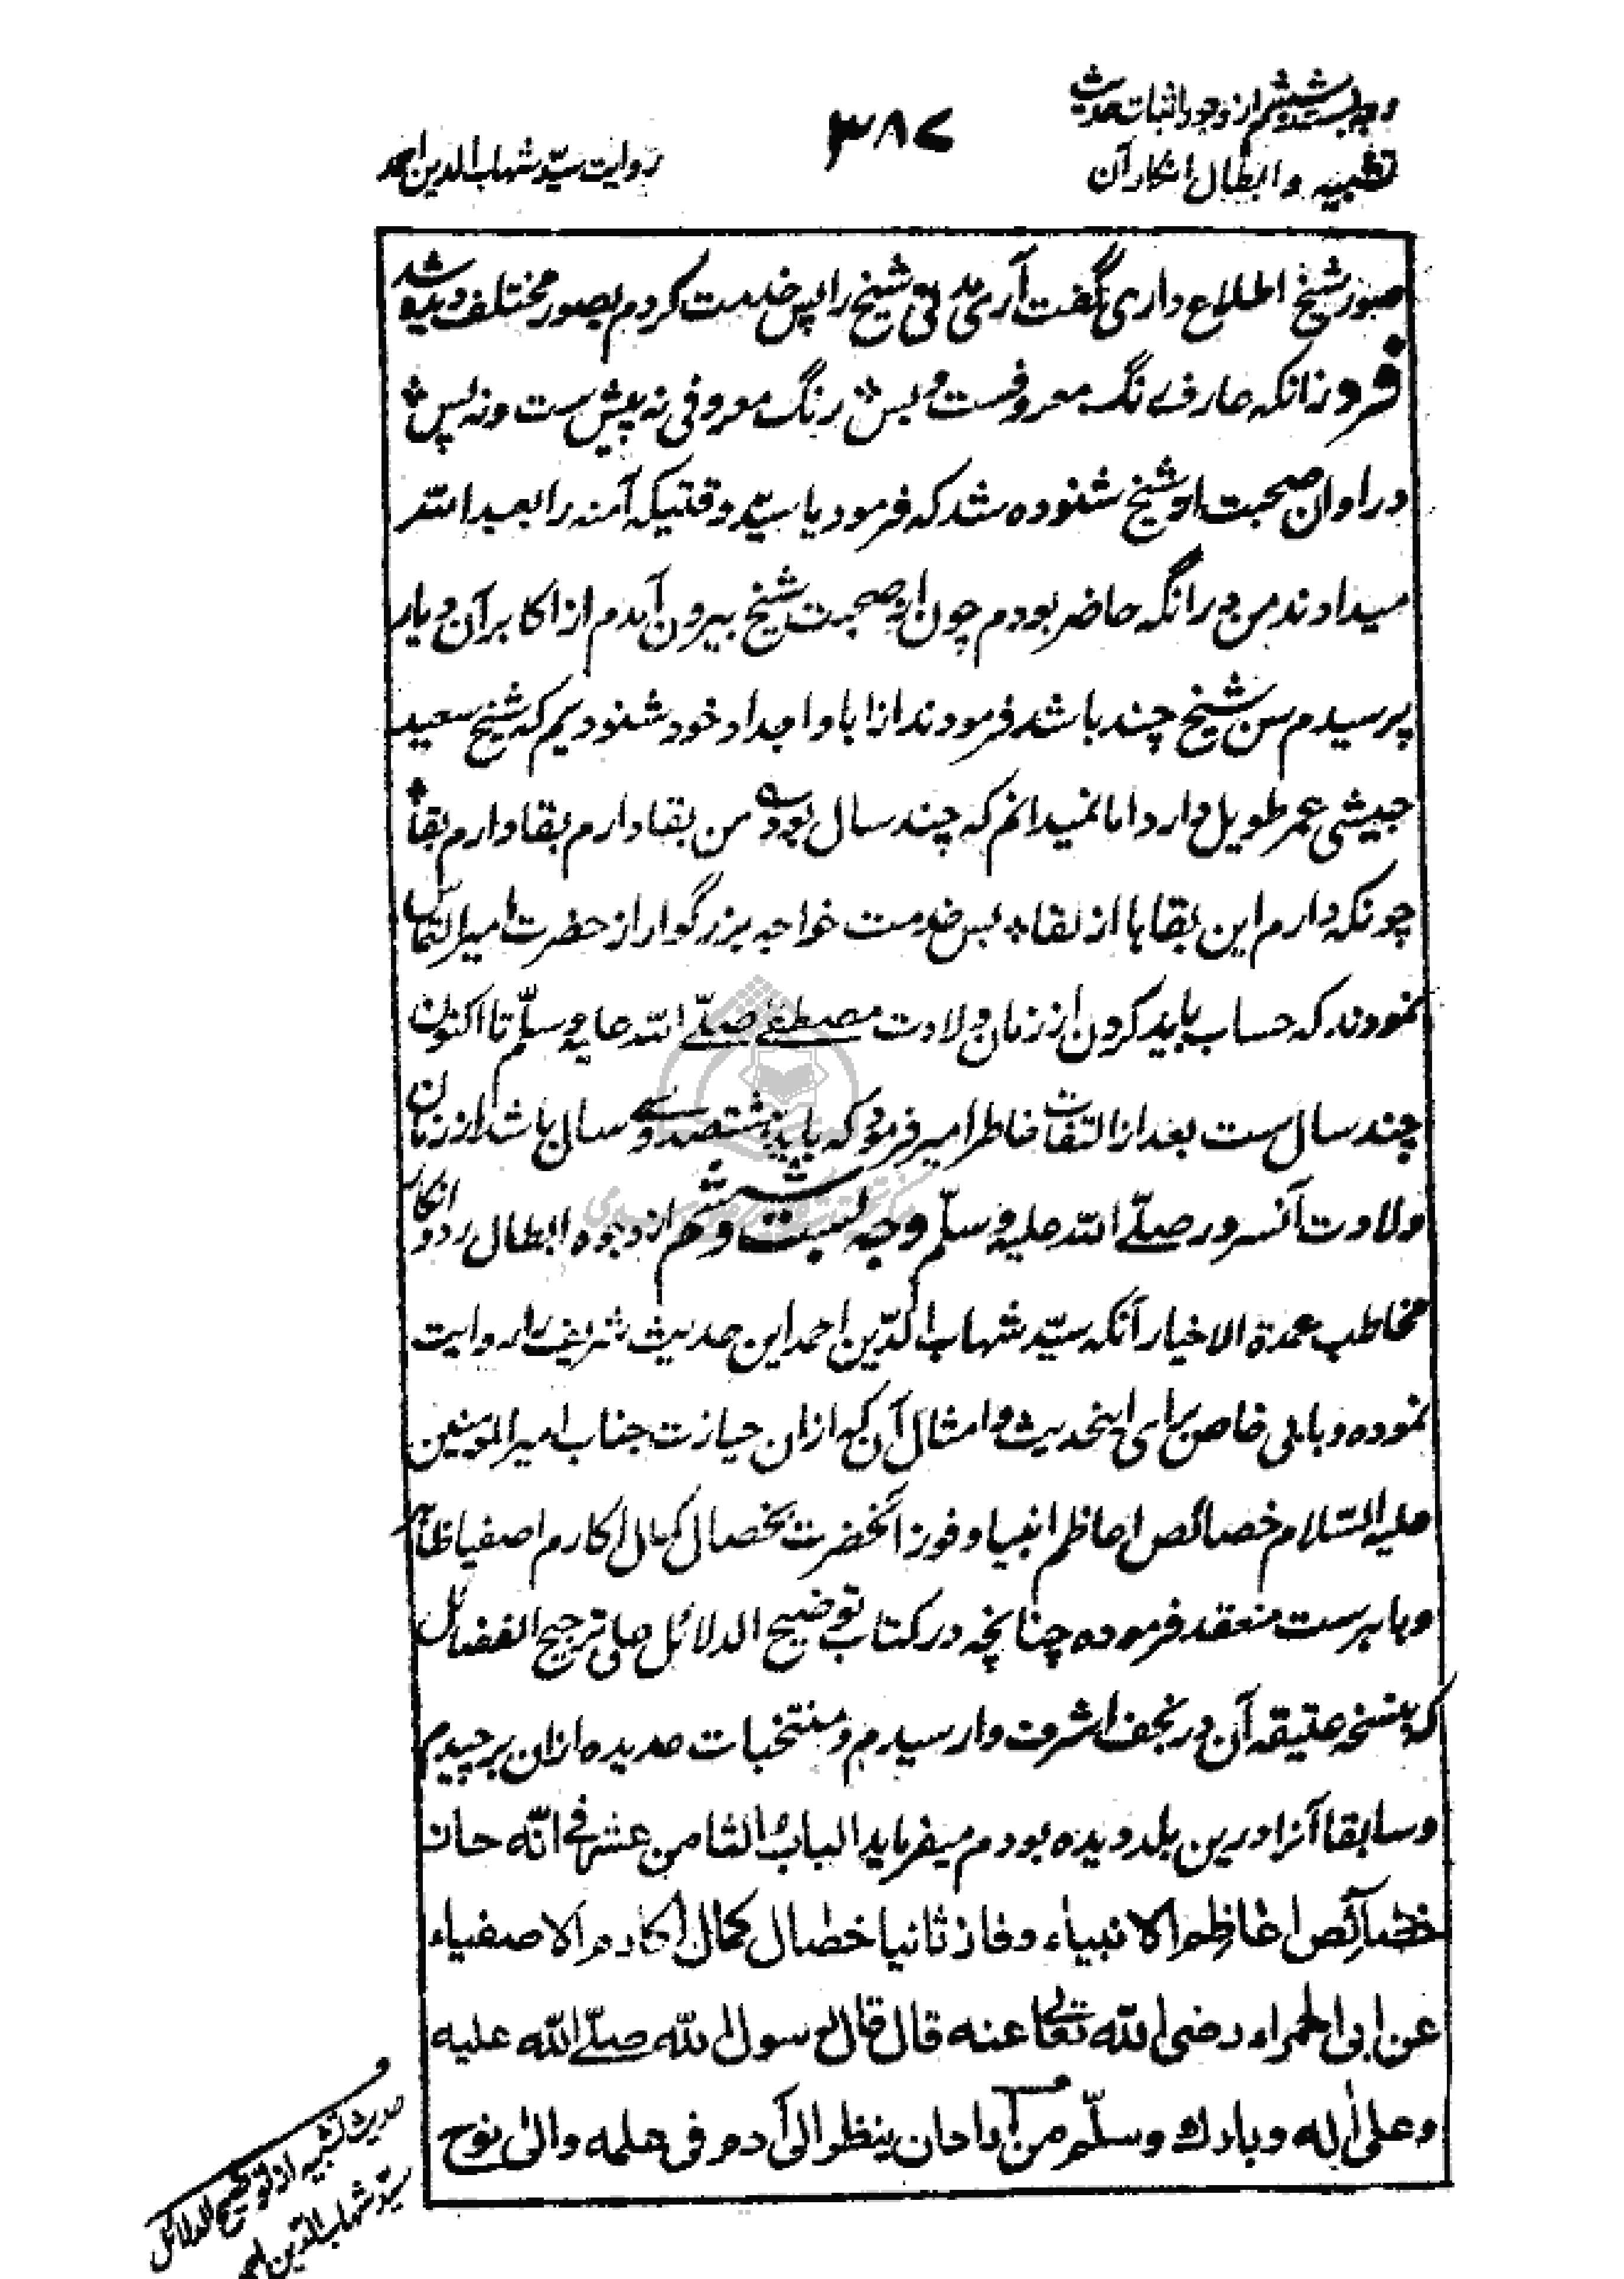 وجه بست و ششم از وجوه اثبات حدیث
تشبیه و ابطال انکار آن
۳۸۷
روایت سیّد شهاب الدین احمد
صور شیخ اطلاع داری گفت آری مدتی شیخ را پس خدمت کردم بصور مختلف دیده شد
فرد زانکه عارف رنگ معروفست و بس رنگ معروفی نه پیش ست و نه پس
در اوان صحبت از شیخ شنوده شد که فرمود یا سیّد وقتیکه آمنه را بعبد الله
میدادند من درانگه حاضر بودم چون از صحبت شیخ بیرون آمدم از اکابر آن دیار
پرسیدم سن شیخ چند باشد فرمودند از ابا و اجداد خود شنودیم که شیخ سعید
حبشی عمر طویل دارد اما نمیدانم که چند سال بود من بقا دارم بقا دارم بقا
چونکه دارم این بقاها از لقا پس خدمت خواجه بزرگوار از حضرت امیر التماس
نمودند که حساب باید کردن از زمان ولادت مصطفے صلّے الله علیه و سلّم تا اکنون
چند سال ست بعد از التفات خاطر امیر فرمود که باید هشتصد و سے سال باشد از زمان
ولادت آنسرور صلّے الله علیه و سلّم وجه بست و ششم از وجوه ابطال رد و انکار
مخاطب عمدة الاخیار آنکه سیّد شهاب الدّین احمد این حدیث شریف را روایت
نموده و بابی خاص برای اینحدیث و امثال آن که ازان حیازت جناب امیر المومنین
علیه السّلام خصائص اعاظم انبیا و فوز آنحضرت بخصال کمال اکارم اصفیا ظاهر
و باهرست منعقد فرموده چنانچه در کتاب توضیح الدلائل علی ترجیح الفضائل
که بنسخه عتیقه آن در نجف اشرف وا رسیدم و منتخبات عدیده ازان برچیدم
و سابقا آنرا درین بلد دیده بودم میفرماید الباب الثامن عشر فے انّه حاز
خصآئص اعاظم الانبیاء و فاز ثانیا خصال کمال اکارم الاصفیاء
عن ابی الحمراء رضی الله تعالی عنه قال قال رسول الله صلّے الله علیه
و علی اله و بارك و سلّم من اراد ان ینظر الی آدم فی علمه و الی نوح
حدیث تشبیه از توضیح الدلائل
سیّد شهاب الدّین احمد